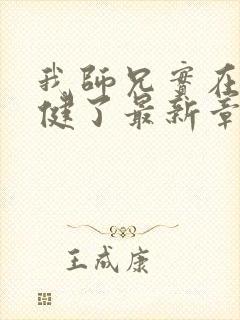 我師兄實在
健了最新章
王成康